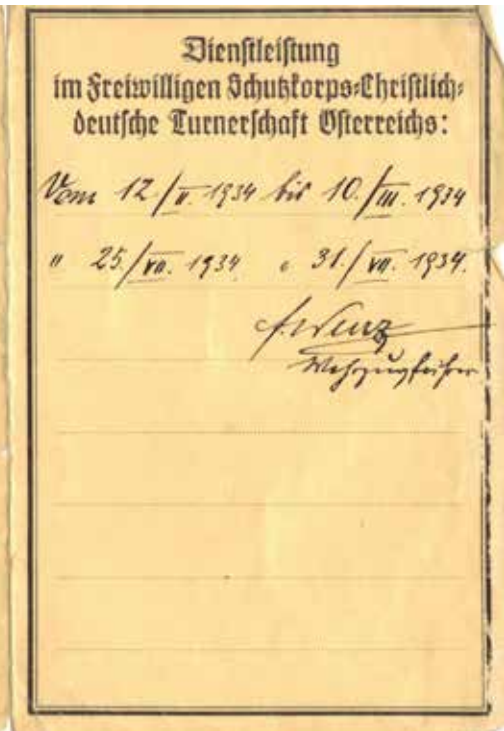 Dienstleistung
im Freiwilligen Schutzkorps-Christlich-
deutsche Turnerschaft Österreichs:
Vom 12/II. 1934 bis 10./III. 1934
" 25./VII. 1934 " 31./VII. 1934.
Wehrzugführer